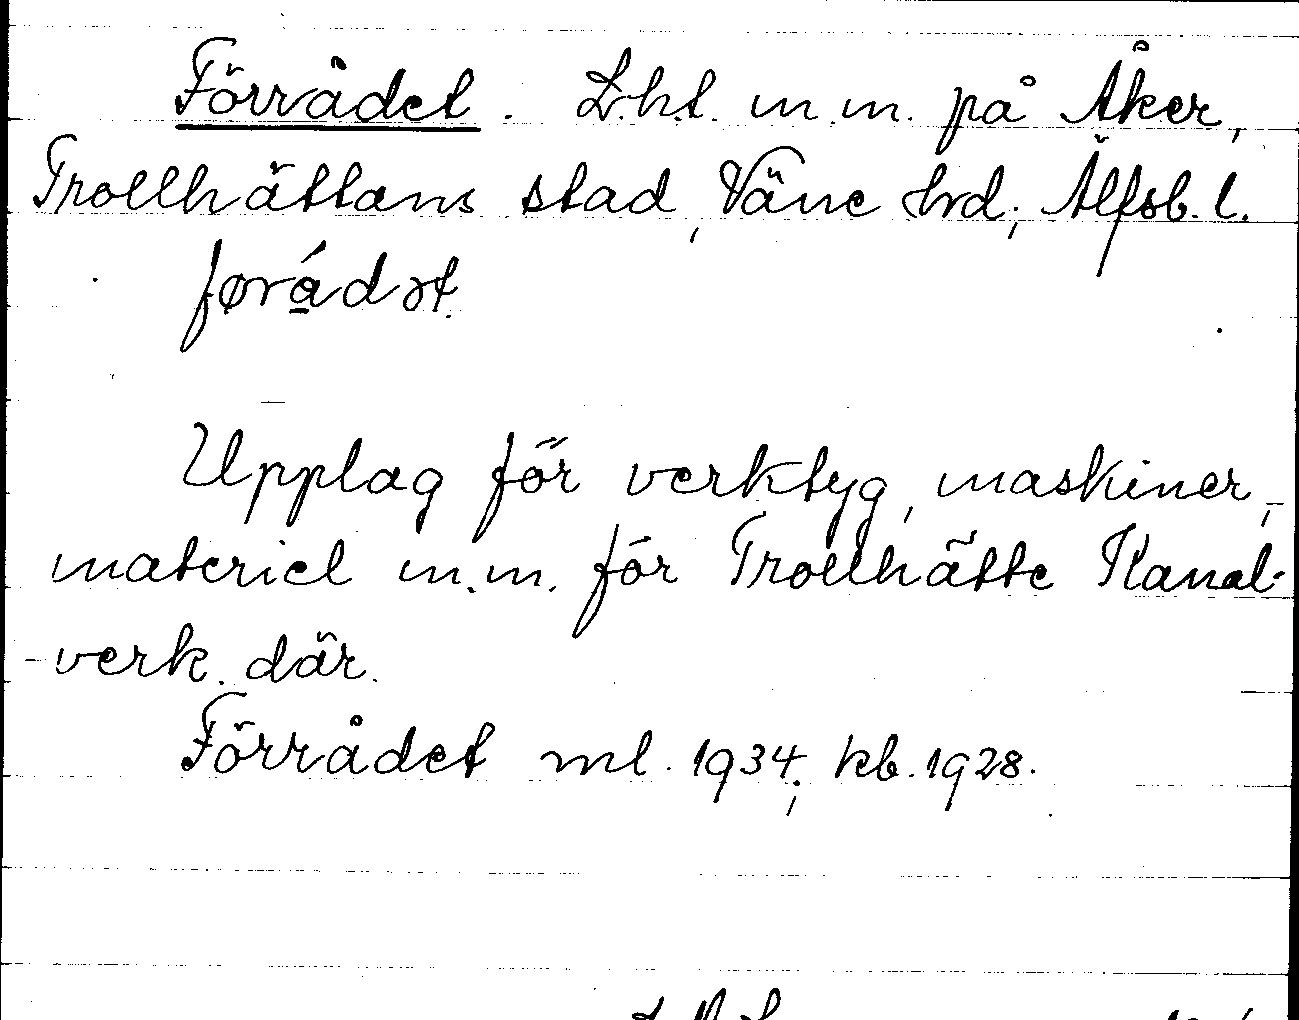 Förrådet. Lht. m.m. på Åker,
Trollhättans stad, Väne hd; Älfsb. l.
førådət
Upplag för verktyg, maskiner,
materiel m.m. för Trollhätte Kanal-
-verk där.
Förrådet ml. 1934; kb. 1928.